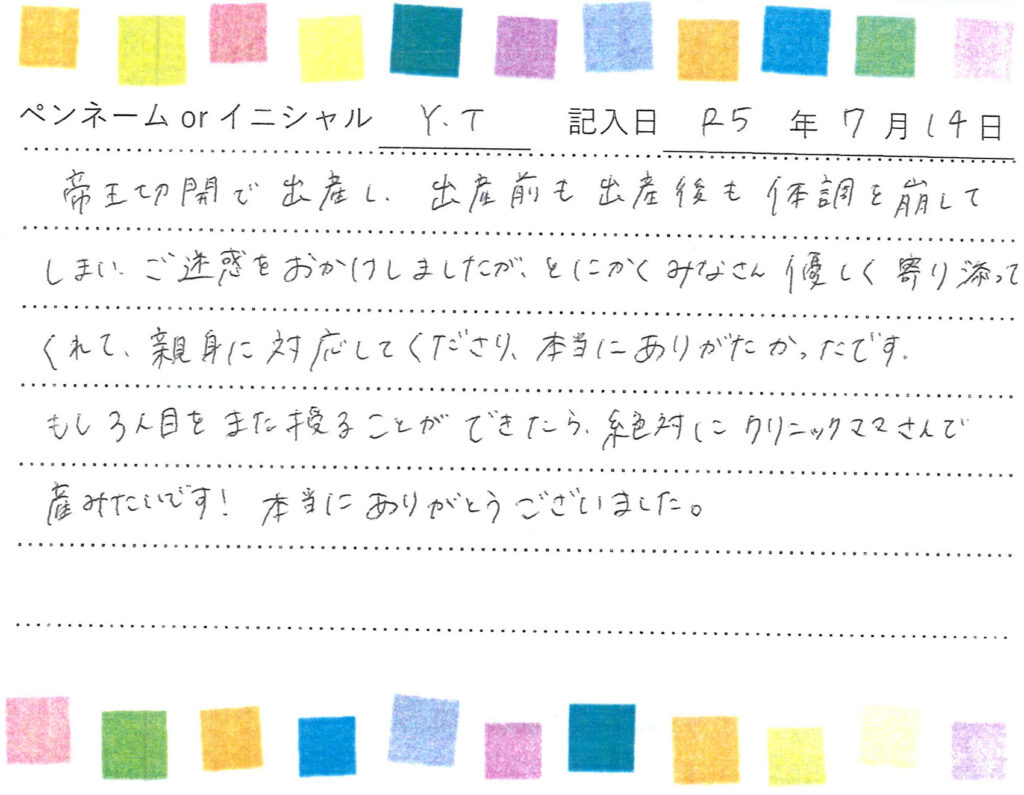 ペンネーム or イニシャル Y.T 記入日 R5 年 7 月 14 日
帝王切開で出産し、出産前も出産後も体調を崩して
しまい、ご迷惑をおかけしましたが、とにかくみなさん優しく寄り添って
くれて、親身に対応してくださり、本当にありがたかったです。
もし3人目をまた授ることができたら、絶対にクリニックママさんで
産みたいです! 本当にありがとうございました。